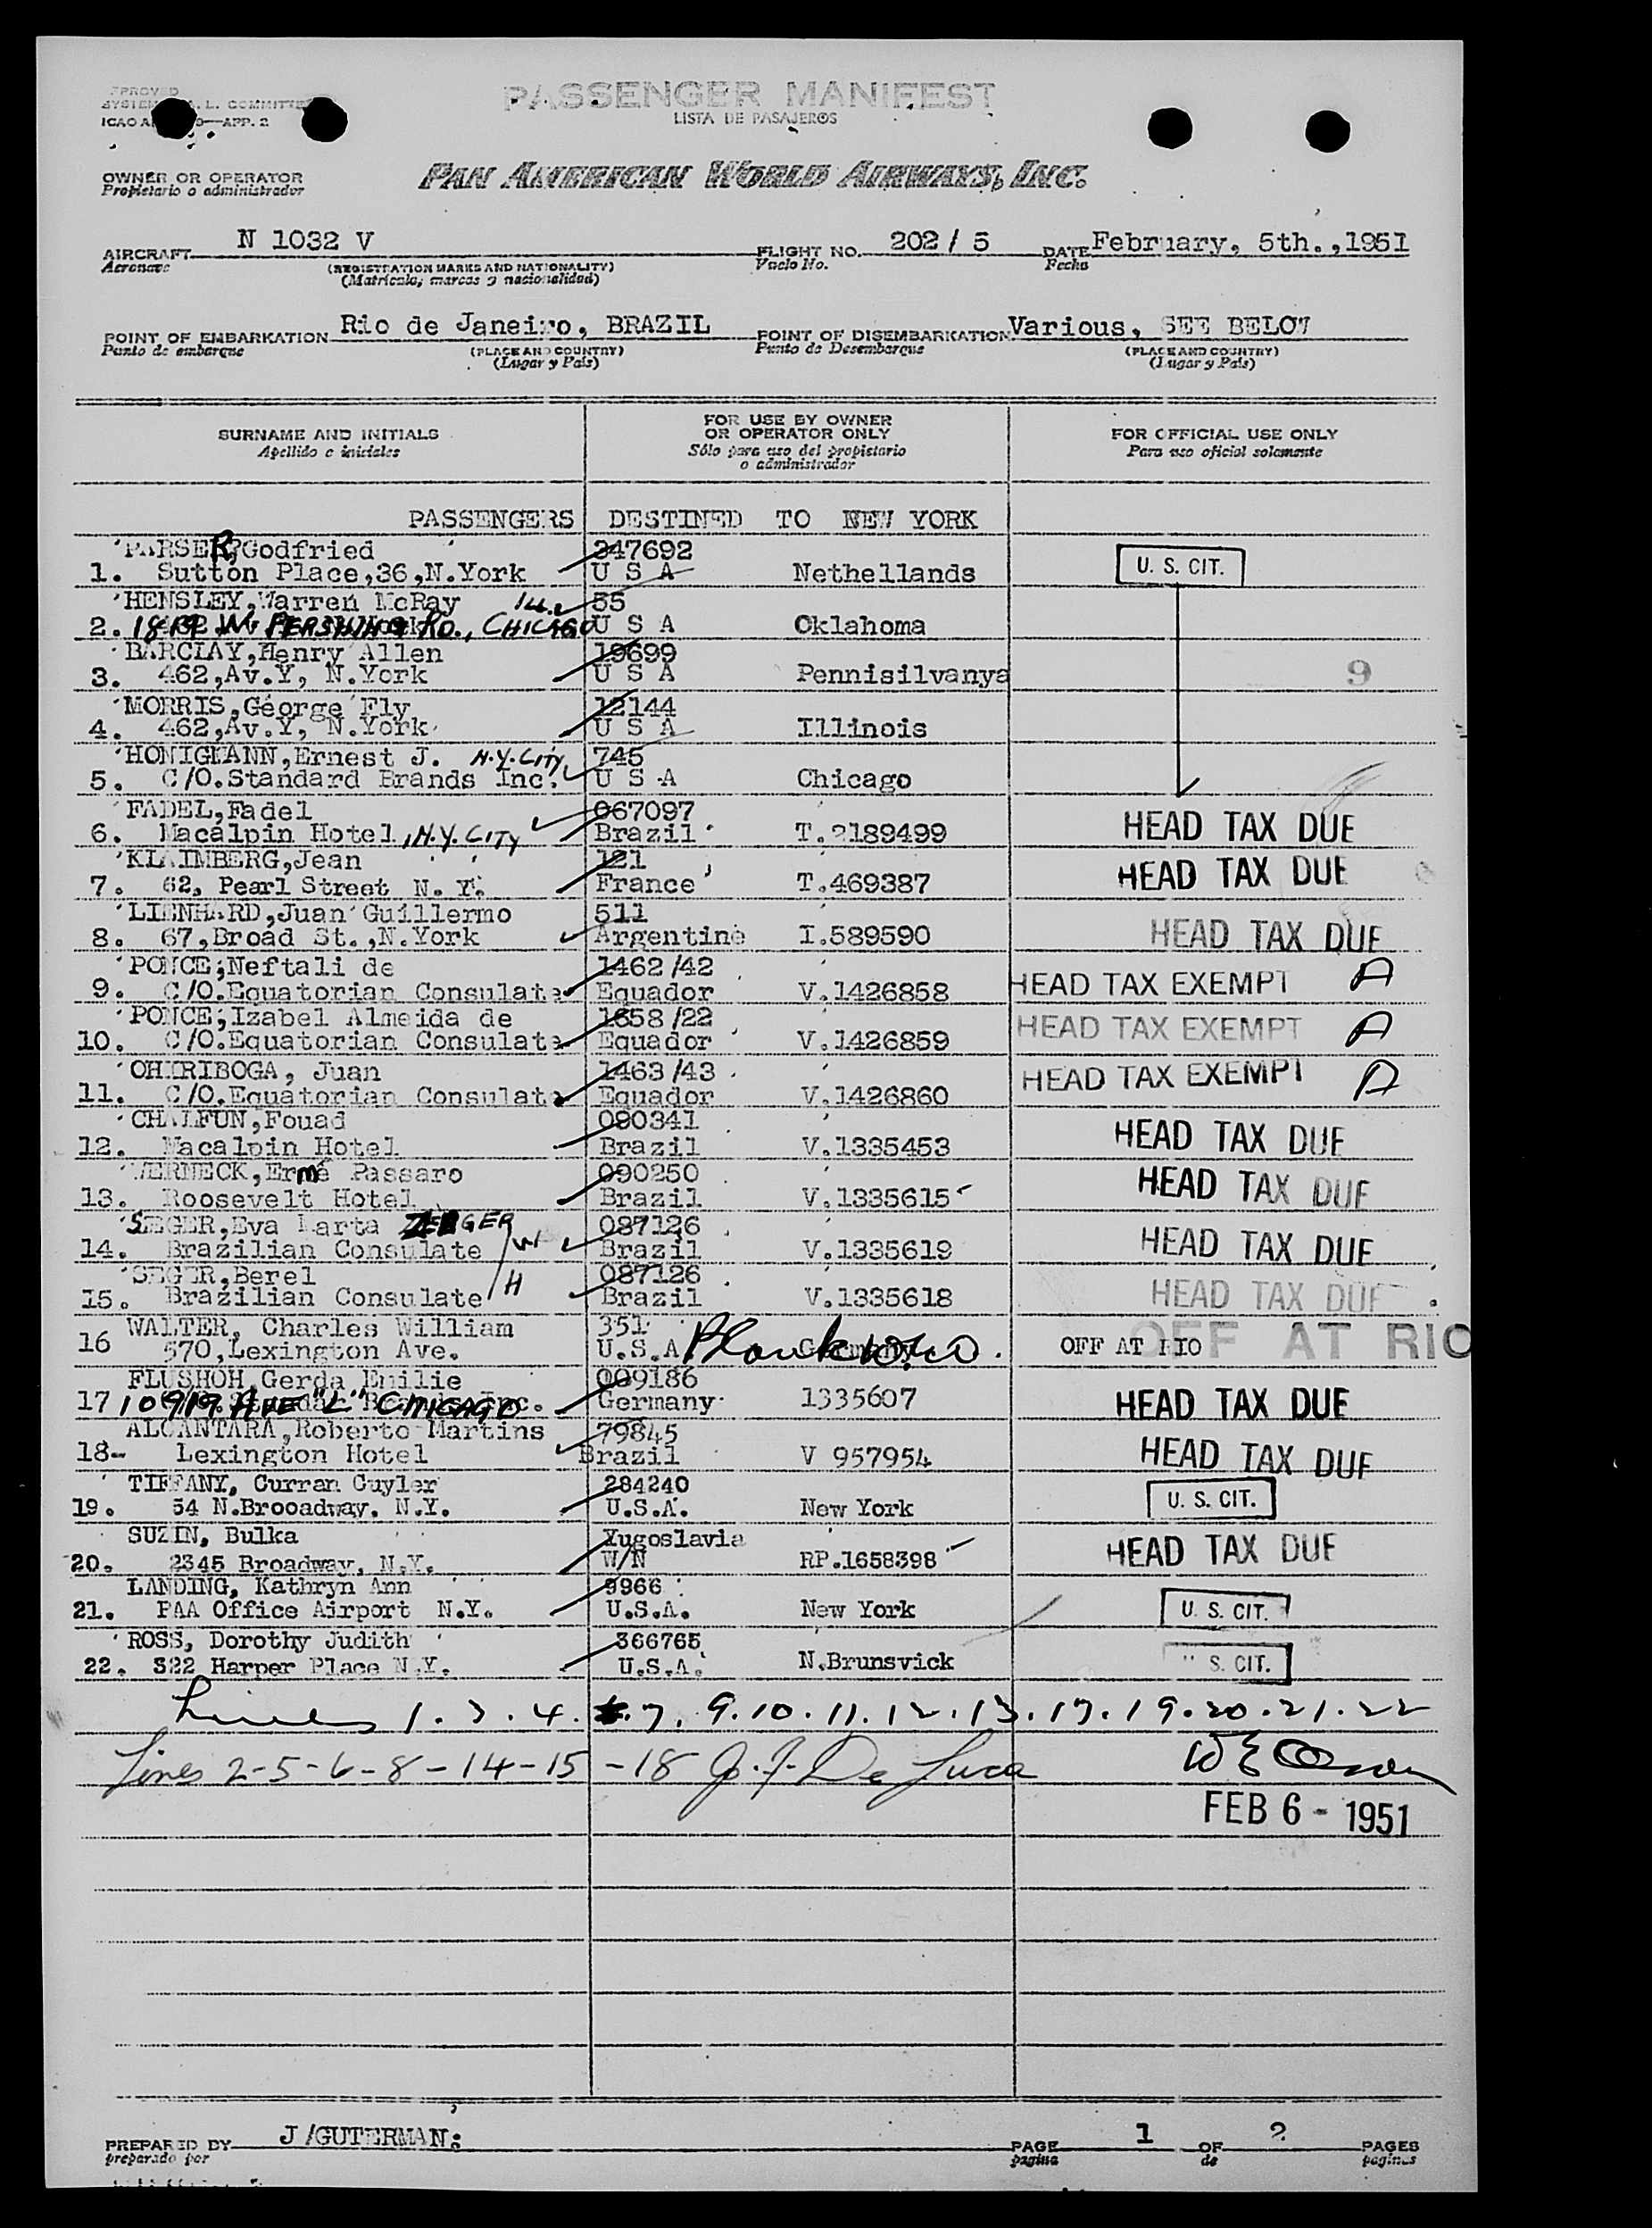 PASSENGER MANIFEST
LISTA DE PASAJEROS
APP. 2
OWNER OR OPERATOR
Propietario o administrador
PAN AMERICAN WORLD AIRWAYS, INC.
AIRCRAFT N 1032 V FLIGHT NO. 202 / 5 DATE February, 5th.,1951
Aeronave (REGISTRATION MARKS AND NATIONALITY) Vuelo No. Fecha
(Matrícula, marcas y nacionalidad)
POINT OF EMBARKATION Rio de Janeiro, BRAZIL POINT OF DISEMBARKATION Various, SEE BELOW
Punto de embarque (PLACE AND COUNTRY) Punto de Desembarque (PLACE AND COUNTRY)
(Lugar y País) (Lugar y País)
SURNAME AND INITIALS FOR USE BY OWNER OR OPERATOR ONLY FOR OFFICIAL USE ONLY
Apellido e iniciales Sólo para uso del propietario o administrador Para uso oficial solamente
PASSENGERS DESTINED TO NEW YORK
PARSER, Godfried 347692
1. Sutton Place,36,N.York U S A Nethellands U. S. CIT.
HENSLEY,Warren McRay Ill. 55
2. 1819 W. PERSHING RD., CHICAGO U S A Oklahoma
BARCLAY,Henry Allen 19699
3. 462,Av.Y, N.York U S A Pennisilvanya 9
MORRIS,George Fly 12144
4. 462,Av.Y, N.York U S A Illinois
HONIGMANN,Ernest J. N.Y. CITY 745
5. C/O.Standard Brands Inc. U S A Chicago
FADEL,Fadel 067097
6. Macalpin Hotel, N.Y. CITY Brazil T.2189499 HEAD TAX DUE
KLAIMBERG,Jean 121
7. 62, Pearl Street N. Y. France T.469387 HEAD TAX DUE
LIENHARD,Juan Guillermo 511
8. 67,Broad St.,N.York Argentine I.589590 HEAD TAX DUE
PONCE;Neftali de 1462/42
9. C/O.Equatorian Consulate Equador V.1426858 HEAD TAX EXEMPT A
PONCE;Izabel Almeida de 1658/22
10. C/O.Equatorian Consulate Equador V.1426859 HEAD TAX EXEMPT A
OHIRIBOGA, Juan 1463/43
11. C/O.Equatorian Consulate Equador V.1426860 HEAD TAX EXEMPT A
CHALFUN,Fouad 090341
12. Macalpin Hotel Brazil V.1335453 HEAD TAX DUE
WERNECK,Ermé Passaro 090250
13. Roosevelt Hotel Brazil V.1335615 HEAD TAX DUE
SEGER,Eva Marta ZEGER 087126
14. Brazilian Consulate W Brazil V.1335619 HEAD TAX DUE
SEGER,Berel 087126
15. Brazilian Consulate H Brazil V.1335618 HEAD TAX DUE
WALTER, Charles William 351
16 570,Lexington Ave. U.S.A Germany OFF AT RIO OFF AT RIO
FLUSHOH,Gerda Emilie 009186
17 10919 AVE "L" CHICAGO Germany 1335607 HEAD TAX DUE
ALCANTARA,Roberto Martins 79845
18- Lexington Hotel Brazil V 957954 HEAD TAX DUE
TIFFANY, Curran Cuyler 284240
19. 54 N.Brooadway. N.Y. U.S.A. New York U. S. CIT.
SUZIN, Bulka Yugoslavia
20. 2345 Broadway, N.Y. W/N RP.1658398 HEAD TAX DUE
LANDING, Kathryn Ann 9966
21. PAA Office Airport N.Y. U.S.A. New York U. S. CIT.
ROSS, Dorothy Judith 366765
22. 322 Harper Place N.Y. U.S.A. N.Brunsvick S. CIT.
Lines 1. 3. 4. 7. 9. 10. 11. 12. 13. 17. 19. 20. 21. 22
Lines 2-5-6-8-14-15-18 J. F. De Luca
FEB 6 - 1951
PREPARED BY J/GUTERMAN: PAGE 1 OF 2 PAGES
preparado por pagina de paginas